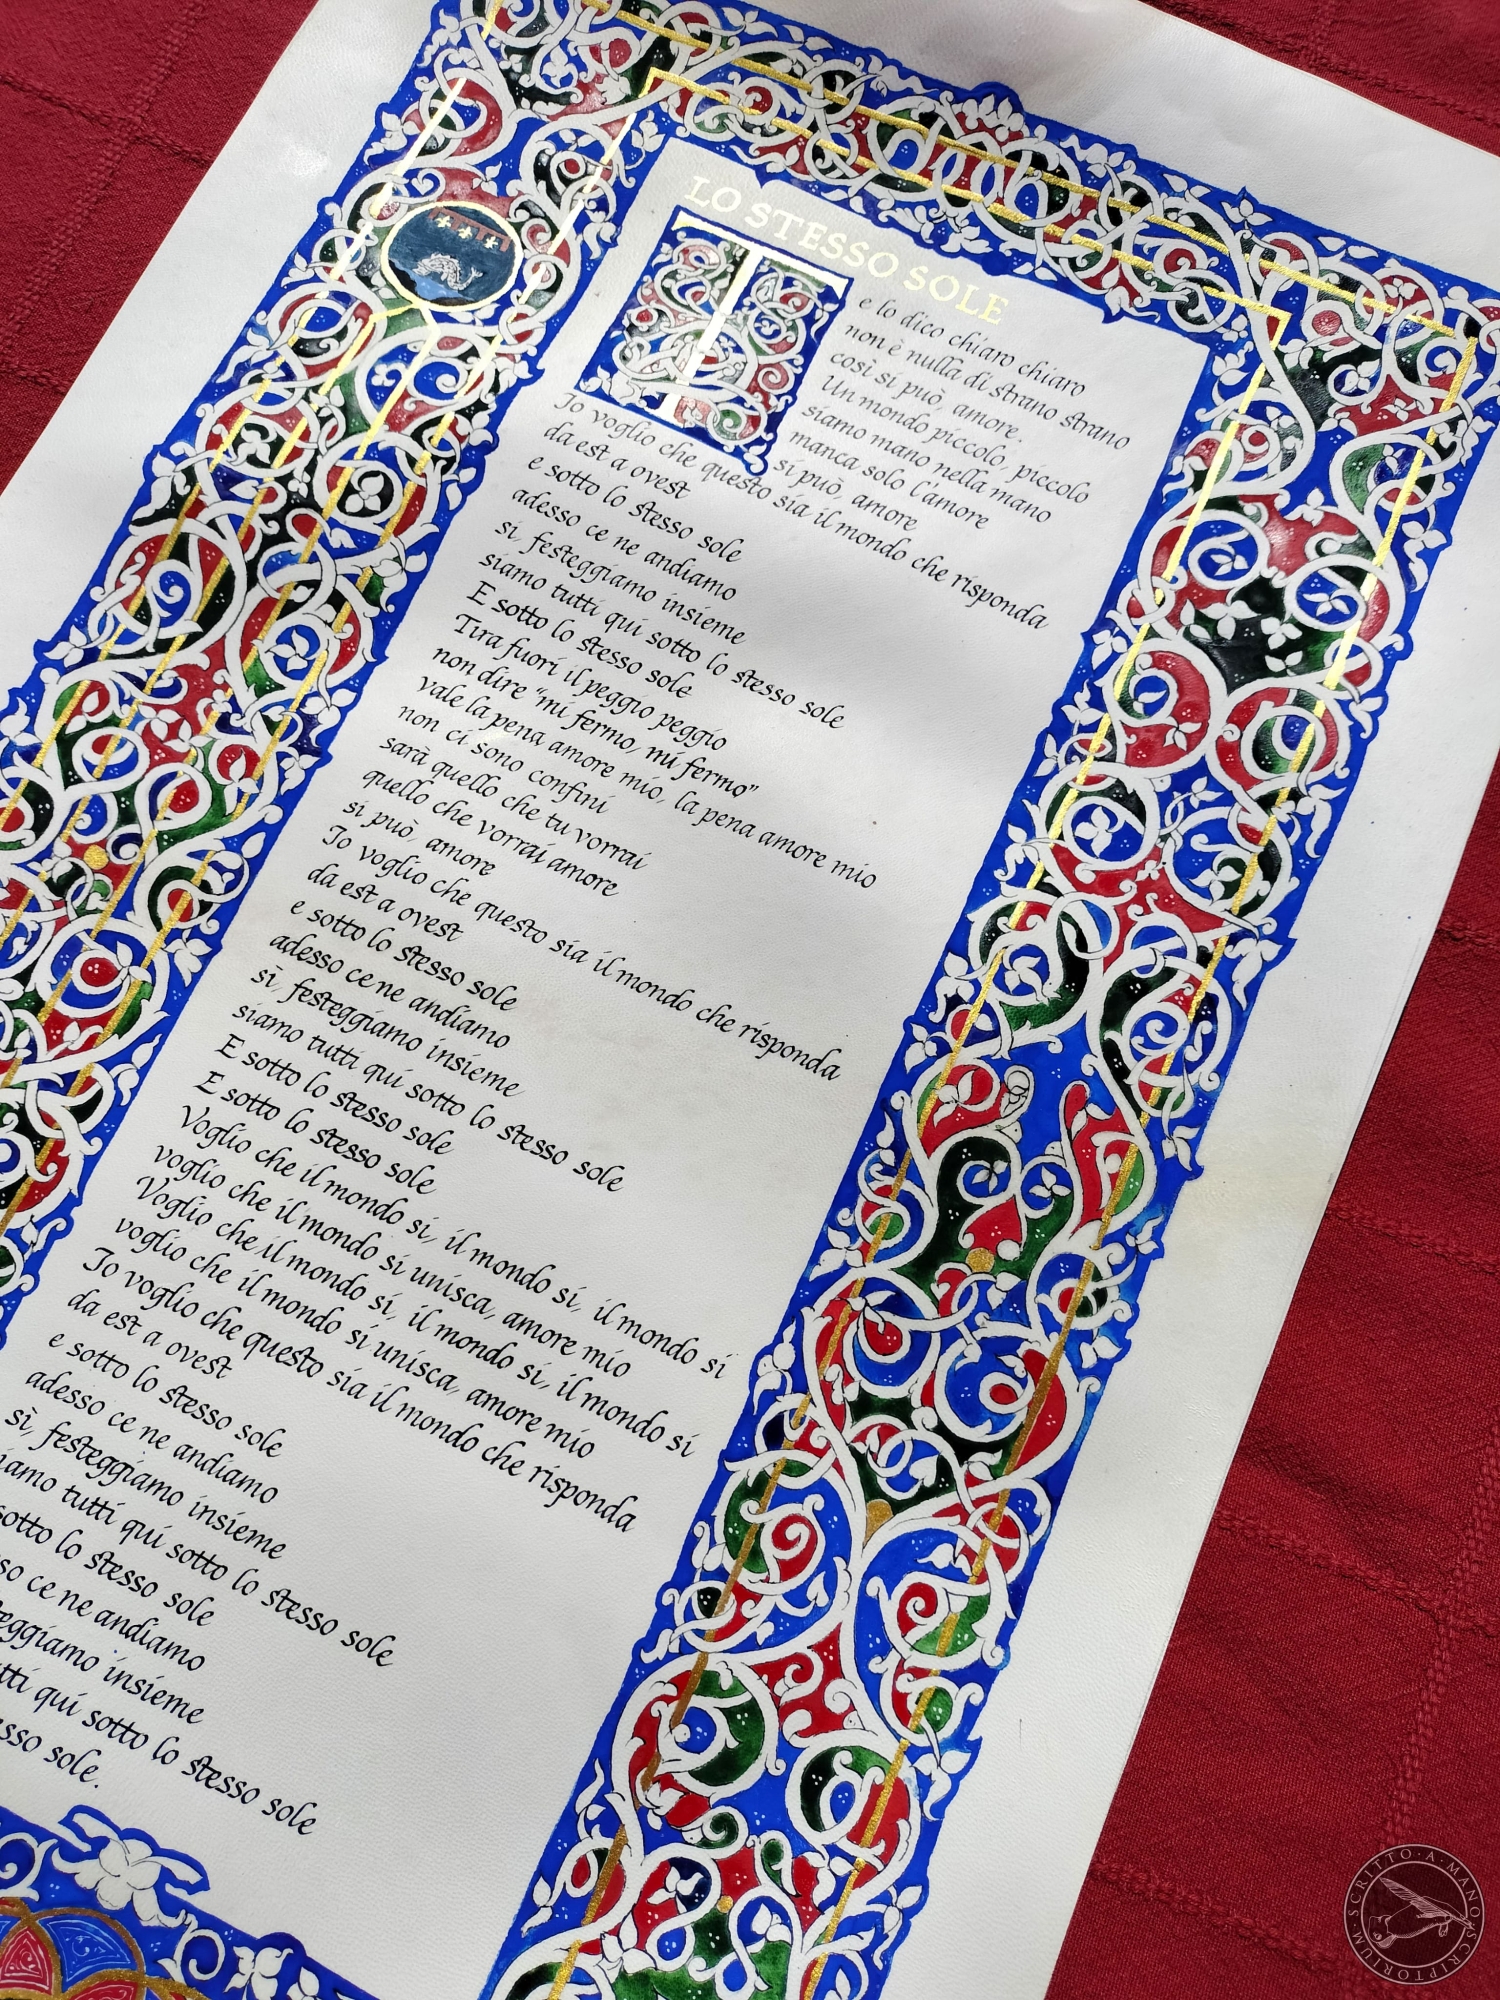 LO STESSO SOLE
Te lo dico chiaro chiaro
non è nulla di strano strano
così si può, amore.
Un mondo piccolo, piccolo
siamo mano nella mano
manca solo l'amore
si può, amore
Io voglio che questo sia il mondo che risponda
da est a ovest
e sotto lo stesso sole
adesso ce ne andiamo
sì, festeggiamo insieme
siamo tutti qui sotto lo stesso sole
E sotto lo stesso sole
Tira fuori il peggio peggio
non dire "mi fermo, mi fermo"
vale la pena amore mio, la pena amore mio
non ci sono confini
sarà quello che tu vorrai
quello che vorrai amore
si può, amore
Io voglio che questo sia il mondo che risponda
da est a ovest
e sotto lo stesso sole
adesso ce ne andiamo
sì, festeggiamo insieme
siamo tutti qui sotto lo stesso sole
E sotto lo stesso sole
E sotto lo stesso sole
Voglio che il mondo si, il mondo si, il mondo si
voglio che il mondo si unisca, amore mio
Voglio che il mondo si, il mondo si, il mondo si
voglio che il mondo si unisca, amore mio
Io voglio che questo sia il mondo che risponda
da est a ovest
e sotto lo stesso sole
adesso ce ne andiamo
sì, festeggiamo insieme
siamo tutti qui sotto lo stesso sole
sotto lo stesso sole
ce ne andiamo
insieme
qui sotto lo stesso sole
sole.
SCRITTO·A·MANO·SCRIPTORIUM